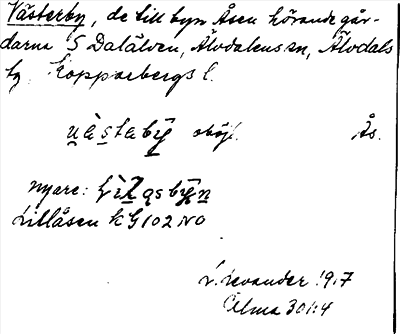 Västerby, de till byn Åsen hörande går-
darna S Dalälven, Älvdalens sn, Älvdals
tg, Kopparbergs l.
u̯à̤stabȳ oböjl. Ås.
nyare:
Lillåsen kG 102 NO
L. Levander 1917
Alma 3014